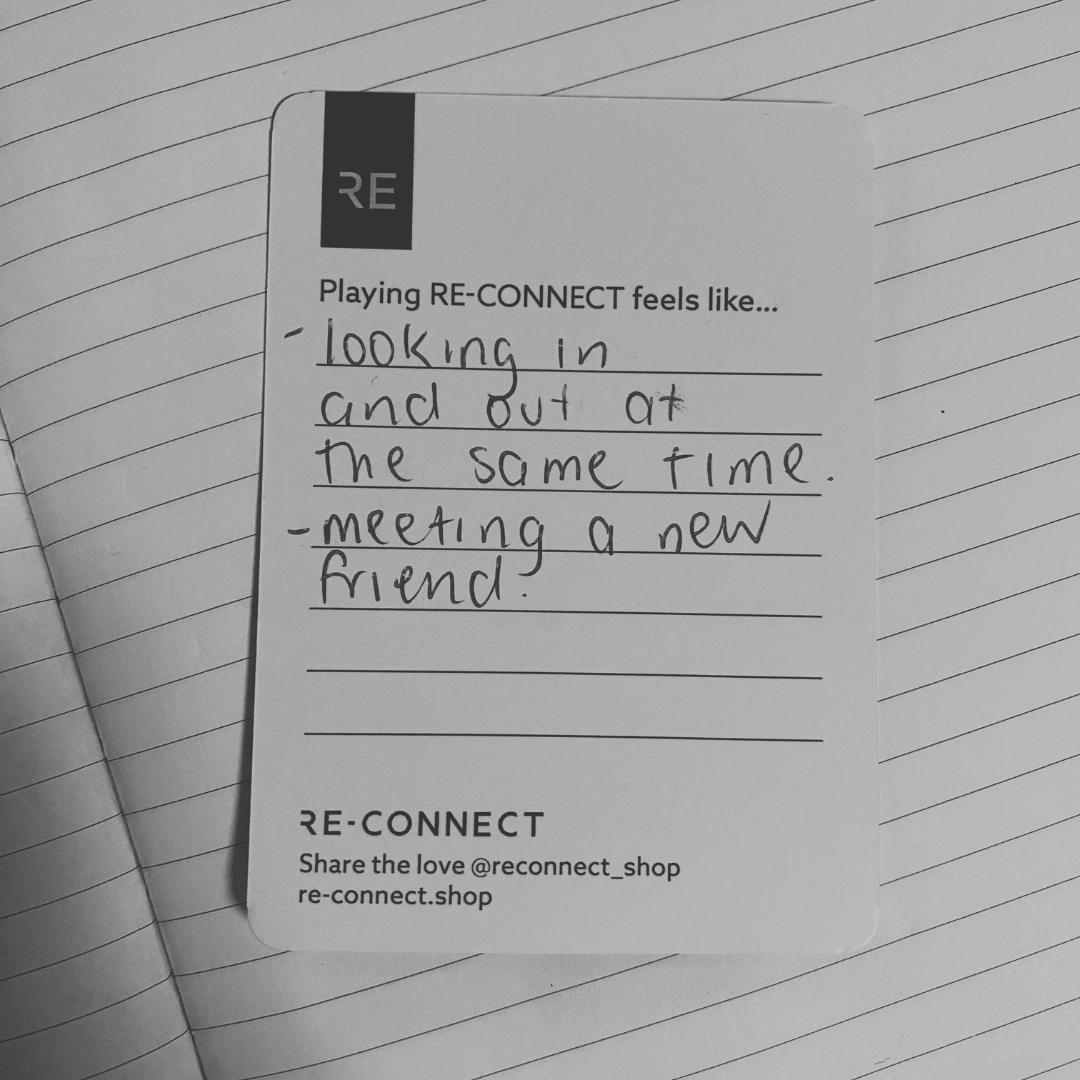 RE
Playing RE-CONNECT feels like...
- looking in
and out at
the same time.
- meeting a new
friend.
RE-CONNECT
Share the love @reconnect_shop
re-connect.shop